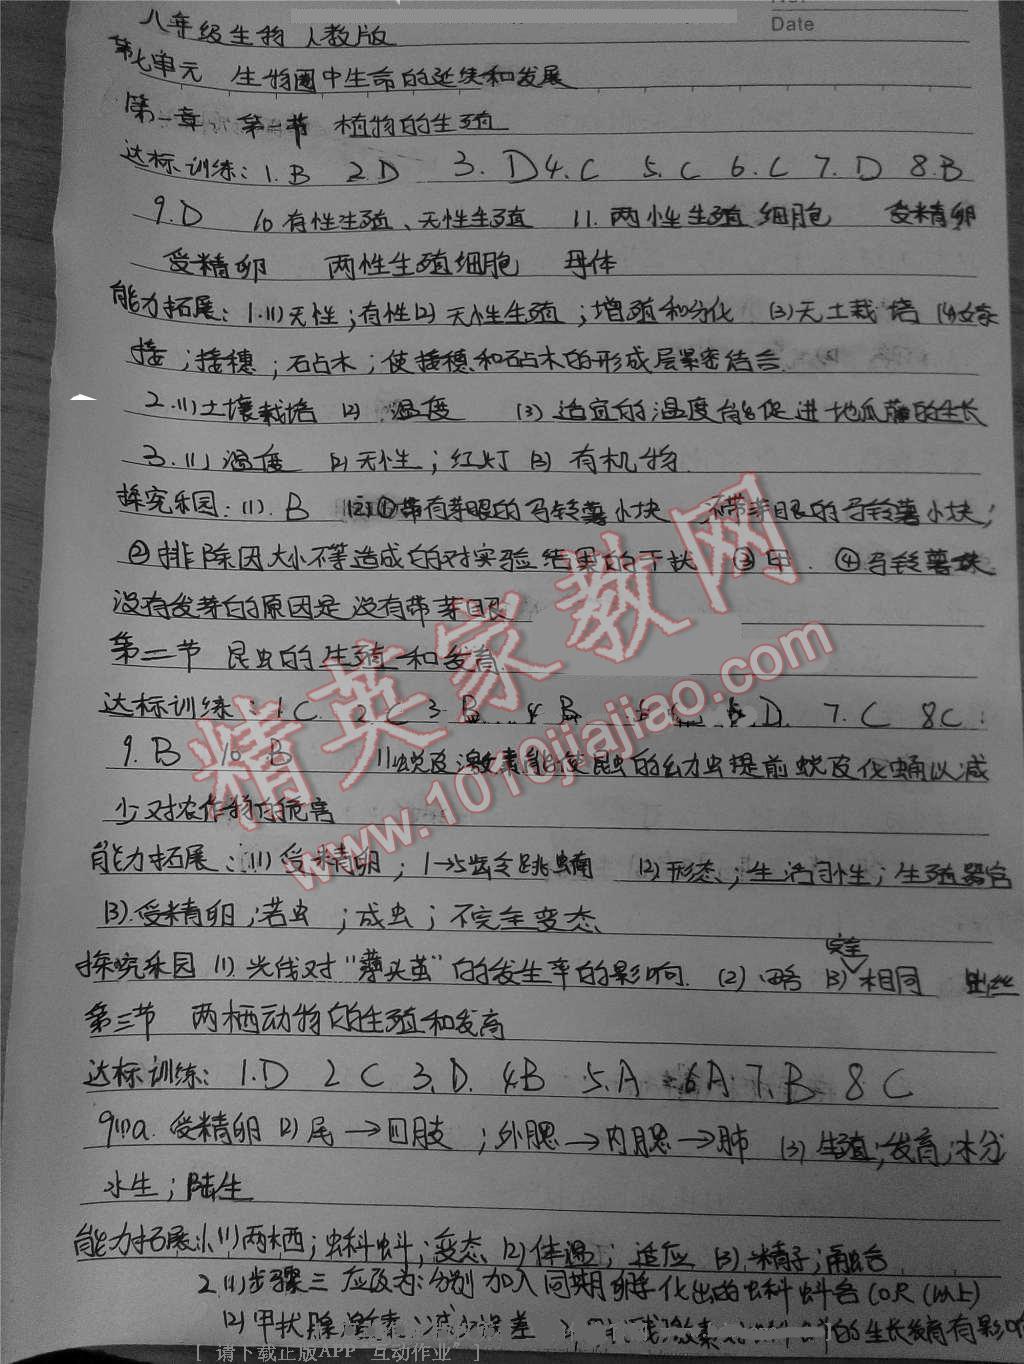 Date
八年级生物 人教版
第七单元 生物圈中生命的延续和发展
第一章 第一节 植物的生殖
达标训练：1.B 2.D 3.D 4.C 5.C 6.C 7.D 8.B
9.D 10.有性生殖、无性生殖 11.两性生殖细胞 受精卵
受精卵 两性生殖细胞 母体
能力拓展：1.(1)无性；有性(2)无性生殖；增殖和分化 (3)无土栽培 (4)嫁
接；接穗；砧木；使接穗和砧木的形成层紧密结合
2.(1)土壤栽培 (2)温度 (3)适宜的温度能促进地瓜藤的生长
3.(1)温度 (2)无性；红灯 (3)有机物
探究乐园：(1).B (2)①带有芽眼的马铃薯小块 不带芽眼的马铃薯小块；
②排除因大小不等造成的对实验结果的干扰 ③甲. ④马铃薯块
没有发芽的原因是没有带芽眼
第二节 昆虫的生殖和发育
达标训练：1.C 2.C 3.B 4.B 5.C 6.D. 7.C 8C.
9.B 10.B 11.蜕皮激素能使昆虫的幼虫提前蜕皮化蛹以减
少对农作物的危害
能力拓展：(1)受精卵；1→5龄 跳蝻 (2)形态；生活习性；生殖器官
(3).受精卵；若虫；成虫；不完全变态
探究乐园 (1).光线对"薄头茧"的发生率的影响. (2)略 (3)完全相同 吐丝
第三节 两栖动物的生殖和发育
达标训练：1.D 2 C 3.D. 4B 5.A 6A. 7.B 8 C
9(1)a. 受精卵 (2)尾→四肢；外腮→内腮→肺 (3)生殖；发育；水分
水生；陆生
能力拓展：1.(1)两栖；蝌蚪；变态 (2)体温；适应 (3)精子；融合
2.(1)步骤三 应改为：分别加入同期孵化出的蝌蚪各10只(以上)
(2)甲状腺激素 减少误差 激素 的生长发育有影响
精英家教网
www.1010jiajiao.com
[ 请下载正版APP "互动作业" ]